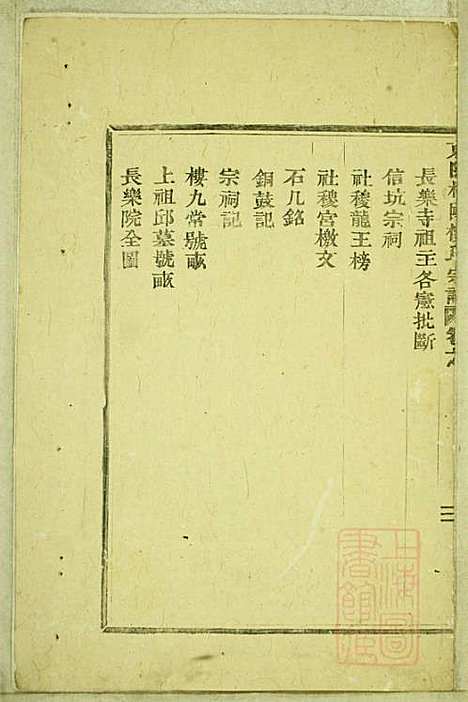 長樂寺祖主各憲批斷
信坑宗祠
社稷龍王榜
社稷宮檄文
石几銘
銅鼓記
宗祠記
樓九常號畝
上祖邱墓號畝
長樂院全圖
三
上海圖書館藏